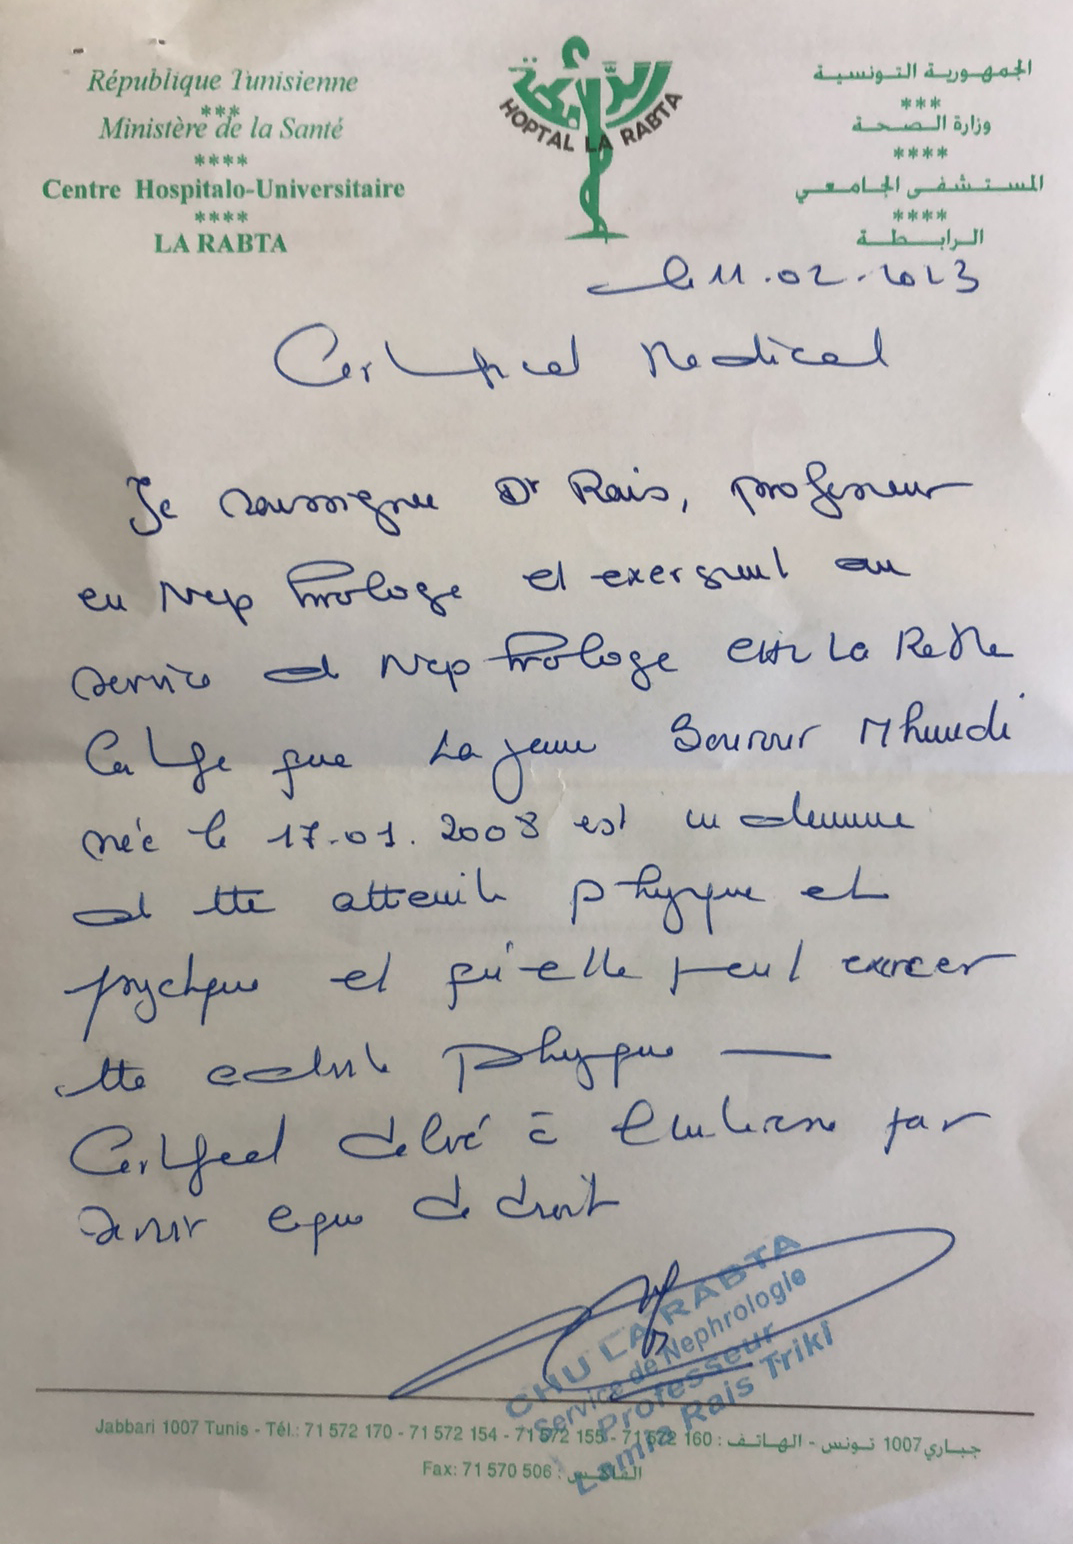 République Tunisienne
***
Ministère de la Santé
****
Centre Hospitalo-Universitaire
****
LA RABTA
الرابطة
HOPTAL LA RABTA
الجمهورية التونسية
***
وزارة الصحة
****
المستشفى الجامعي
****
الرابطة
le 11.02.2023
Certificat Medical
Je soussignée Dr Rais, professeur
en Nephrologie et exerçant au
service de Nephrologie CHU La Rabta
Certifie que La jeune Sourour Mhamdi
née le 17.01.2008 est indemne
de tte atteinte physique et
psychique et qu'elle peut exercer
tte activité physique —
Certificat delivré à l'intéressée par
avoir que de droit
CHU LA RABTA
Service de Nephrologie
Professeur
Lamia Rais Triki
Jabbari 1007 Tunis - Tél.: 71 572 170 - 71 572 154 - 71 572 155 - 71 572 160 : جباري 1007 تونس - الهاتف
Fax: 71 570 506 : الفاكس